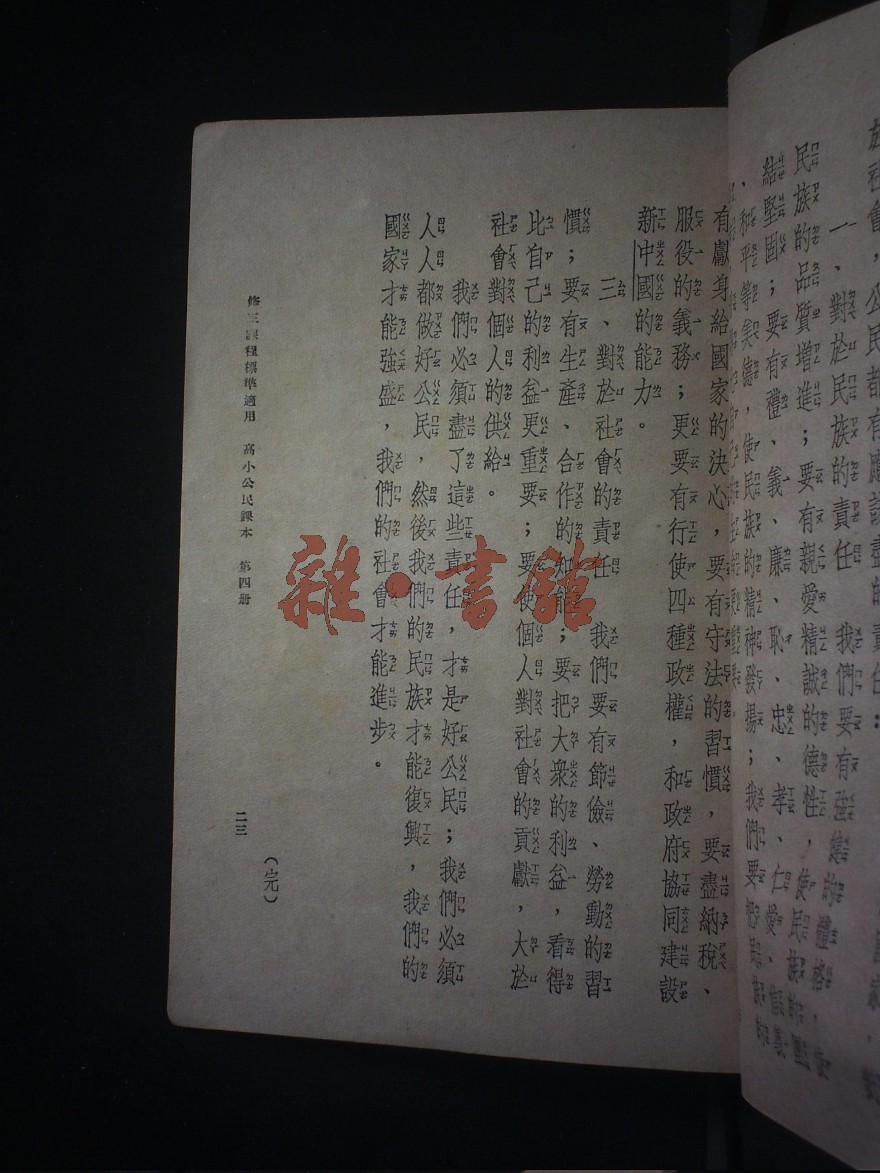 族社會，公民都有應該盡的責任：
一、對於民族的責任　我們要有強健的體格，使
民族的品質增進；要有親愛精誠的德性，使民族的團
結堅固；要有禮、義、廉、恥、忠、孝、仁愛、信義
、和平等美德，使民族的精神發揚；我們要把民族的
有獻身給國家的決心，要有守法的習慣，要盡納稅、
服役的義務；更要有行使四種政權，和政府協同建設
新中國的能力。
三、對於社會的責任　我們要有節儉、勞動的習
慣；要有生產、合作的知能；要把大衆的利益，看得
比自己的利益更重要；要使個人對社會的貢獻，大於
社會對個人的供給。
我們必須盡了這些責任，才是好公民；我們必須
人人都做好公民，然後我們的民族才能復興，我們的
國家才能強盛，我們的社會才能進步。
（完）
修正課程標準適用　高小公民課本　第四册
二三
雜·書館